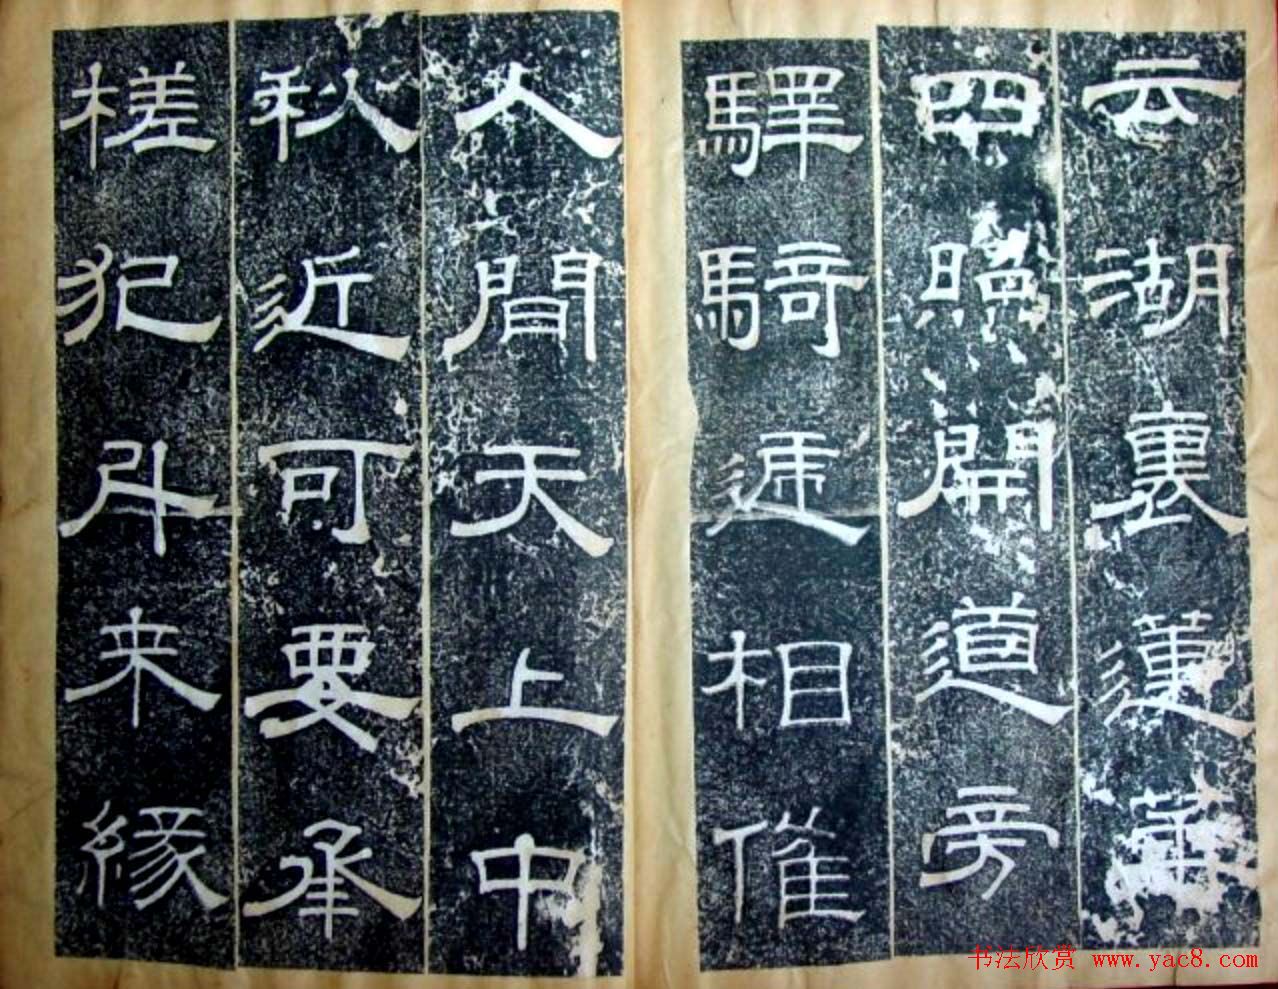 云湖裏蓮華
四照開道旁
驛騎遞相催
人間天上中
秋近可要承
槎犯斗来緣
书法欣赏 www.yac8.com